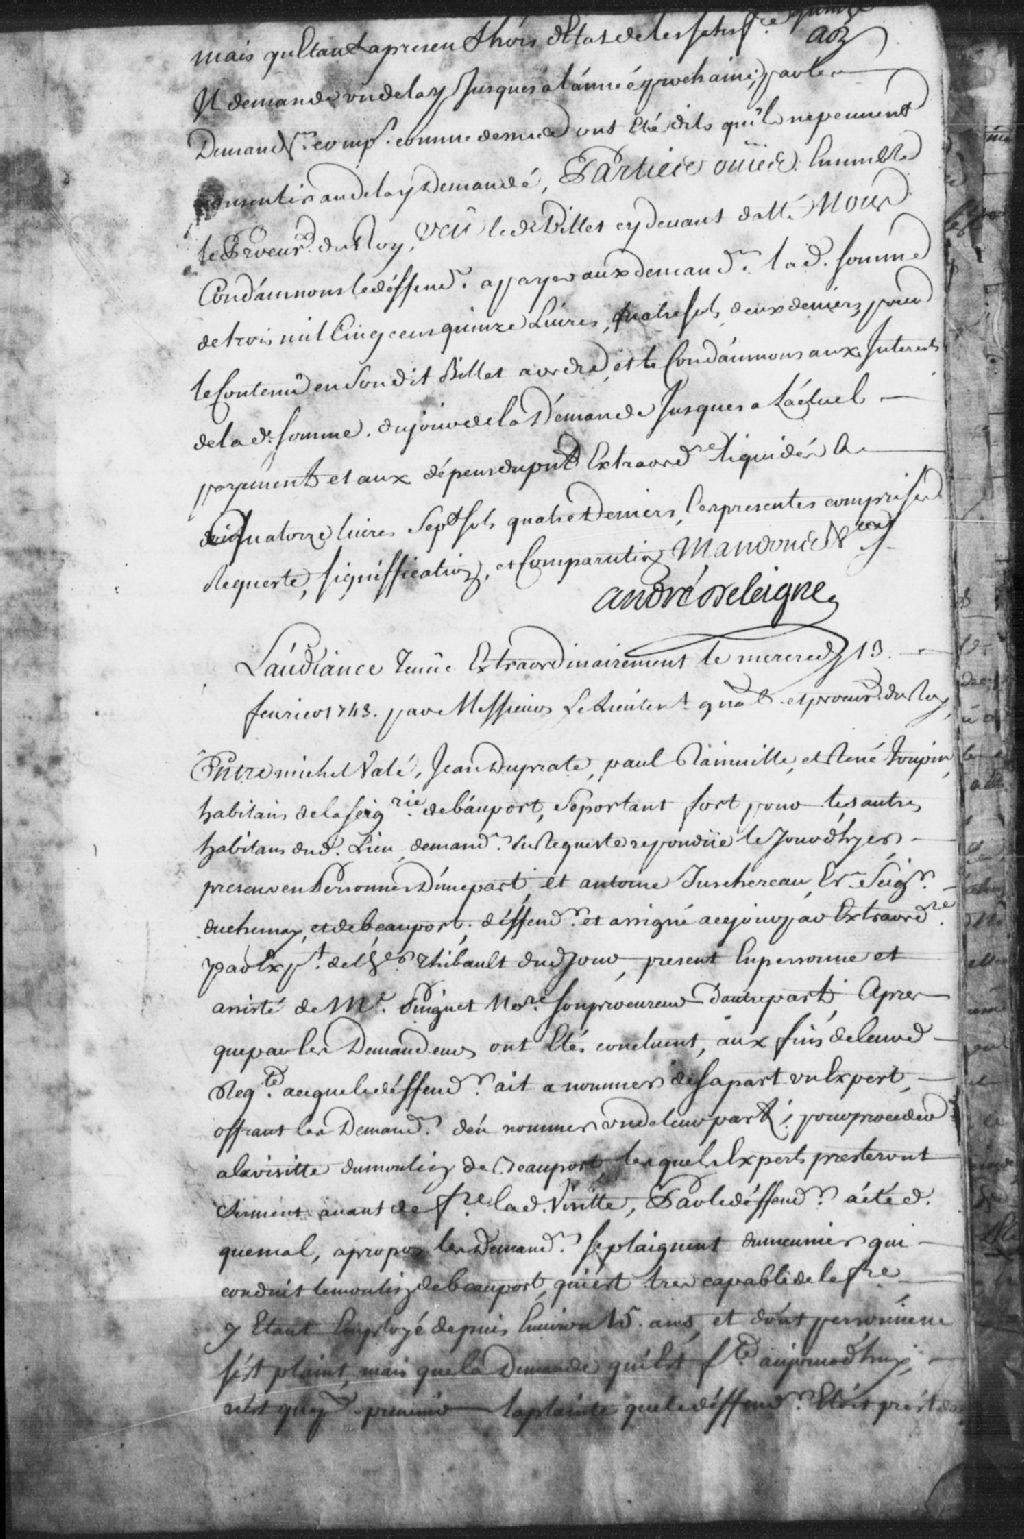 mais qu'Etant apresent hors d'Etat de les satisfre
Il demande un delay Jusques a l'année prochaine, par les
Demandrs. comps. comme dessus ont été dits qu'ils ne peuvent
consentir au delay demandé, Parties ouïes Ensemble
le Procurr. du Roy, Veu le dt Billet cy devant datté Nous
Condamnons le déffendr. a payer aux demandr. lad. somme
de trois mil Cinq cens quinze Livres, quatre sols, deux deniers pour
le Contenu en son dit Billet a ordre, et le Condamnons aux Interests
de lad. somme, du jour de la Demande Jusques a L'actuel
payement et aux dépens du pnt Extraordre liquidés a
quatorze livres Sept sols quatre deniers, les presentes comprises
Requeste, signiffication, et Comparution Mandons &c
André Deleigne
L'audiance Tenüe Extraordinairement le mercredy 13.
fevrier 1743. par Messieurs Le Lieutent gnâl et procurr du Roy
Entre michel Valé, Jean Duprate, paul Rainville, et René Toupin,
habitans de la Seigrie. de bauport, se portant fort pour les autres
habitans dud. Lieu, demandr. En Requeste repondüe le Jour d'hyer
presens en Personnes D'une part, et antoine Juchereau, Er. Seigr.
duchenay, et de beauport, déffendr et assigné a ce jour par Extraordre.
par Expt. de l'her Thibault dud. Jour, present En personne et
assisté de Mr. Pinguet Nore. son procureur D'autre part. Apres
que par les Demandeurs ont Eté concluent, aux fins de leurd
Reqte. a ce que le déffendr. ait a nommer de sa part un Expert,
offrant les Demandr. d'en nommer un de leur part, pour proceder
a la visitte du moulin de Beauport lesquels Experts presteront
Serment avant de fre. lad. Visitte, Par le déffendr. a été d.
que mal, apropos les Demandr. se plaignent du meunier qui
conduit le moulin de beauport, qui est tres capable de le fre
y Etant Employé depuis Environ 15. ans, et dont personne ne
s'est plaint, mais que la Demande qu'ils ft aujourd'huy,
n'est que pr. prevenir la plainte que le déffendr. Etoit prest de